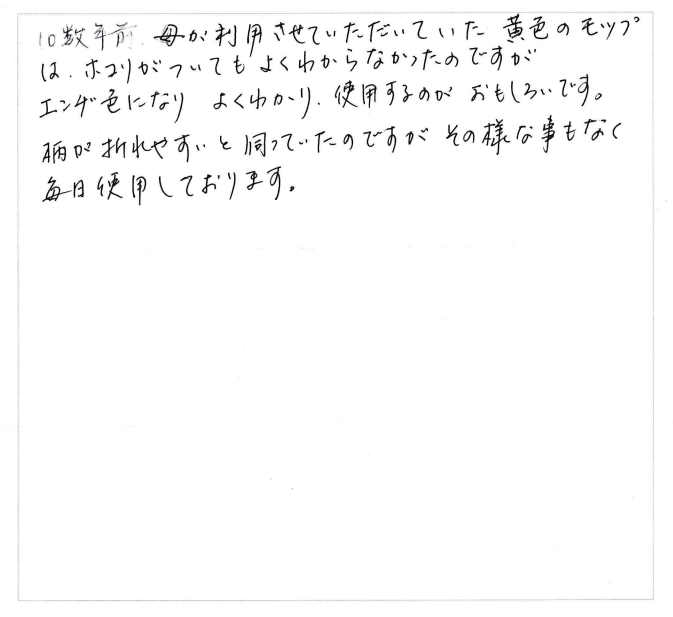 10数年前、母が利用させていただいていた 黄色のモップ
は、ホコリがついてもよくわからなかったのですが
エンヂ色になり よくわかり、使用するのが おもしろいです。
柄が折れやすいと伺っていたのですが その様な事もなく
毎日使用しております。